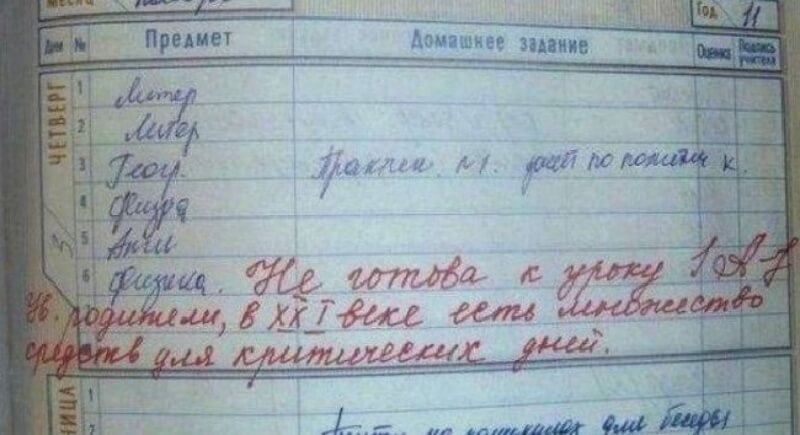 Месяц
Год 11
Дни № Предмет Домашнее задание Оценка Подпись учителя
ЧЕТВЕРГ
1 Литер
2 Литер
3 Геогр. Практич. по политич к.
4 Физра
5 Англ
6 Физика. Не готова к уроку!
Ув. родители, в XXI веке есть множество
средств для критических дней.
НИЦА
1
2 для беседы